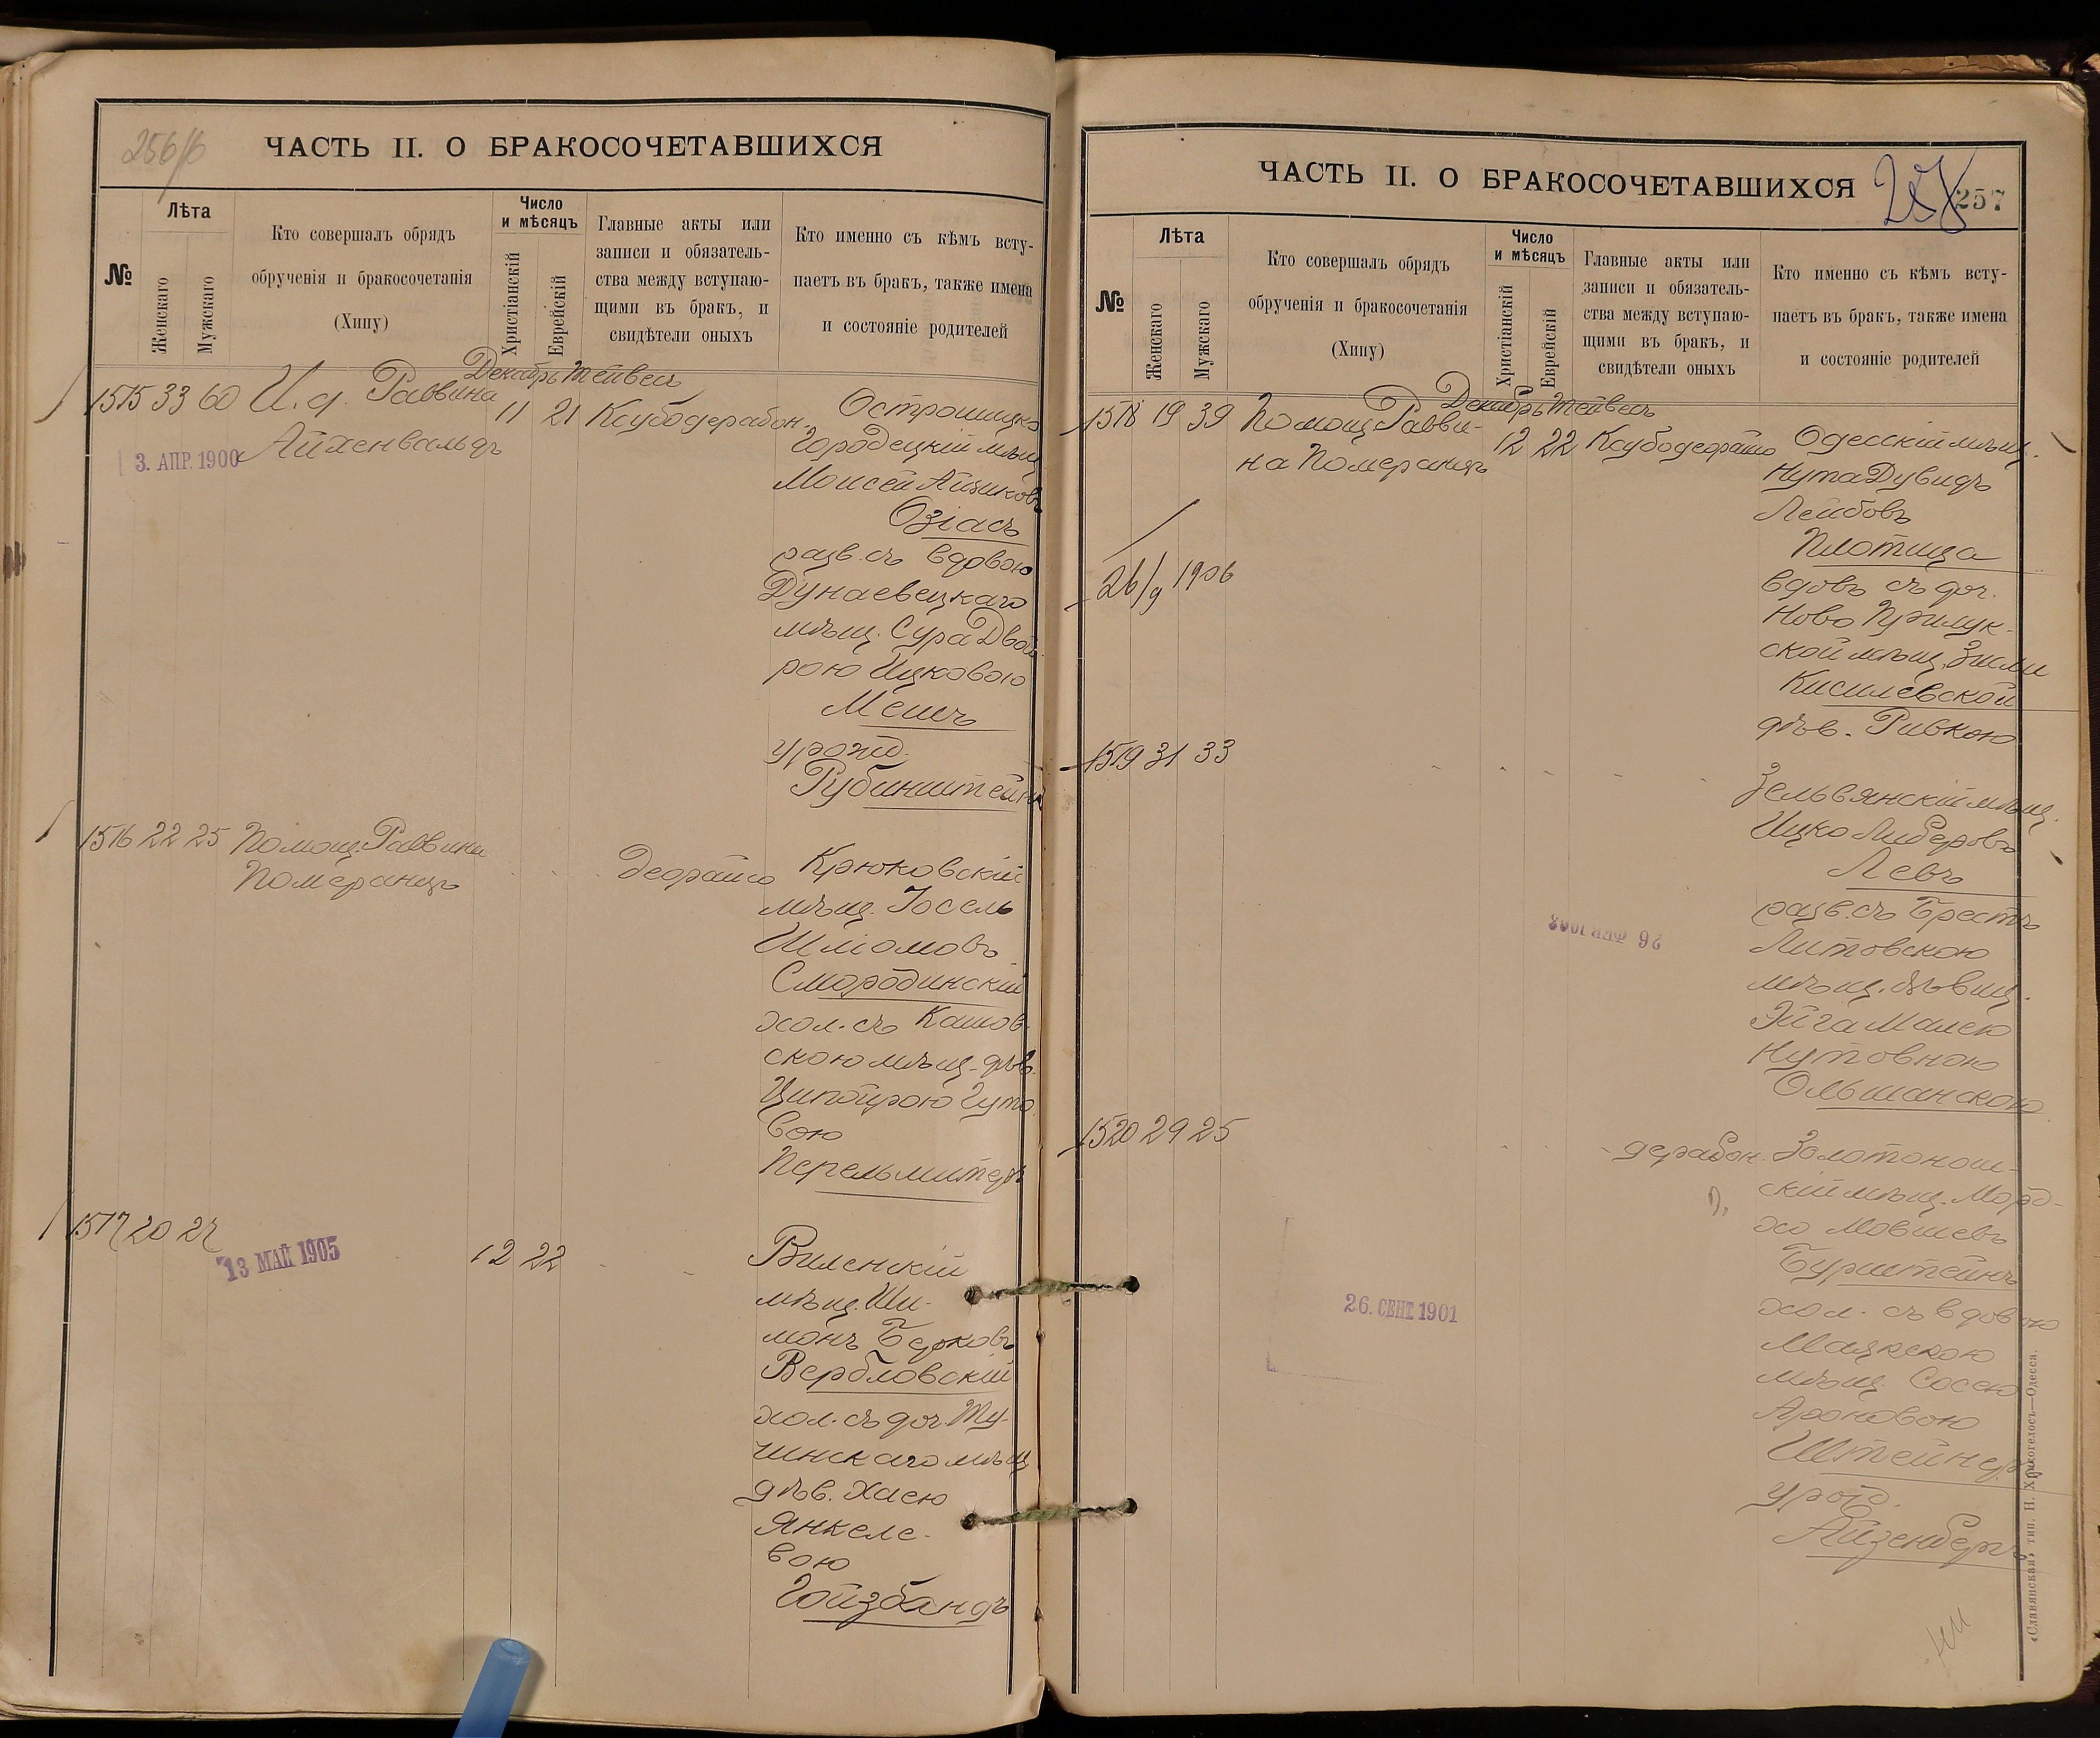 256/б
ЧАСТЬ II. О БРАКОСОЧЕТАВШИХСЯ
№
Лѣта
Женскаго
Мужскаго
Кто совершалъ обрядъ
обрученія и бракосочетанія
(Хипу)
Число
и мѣсяцъ
Христіанскій
Еврейскій
Главные акты или
записи и обязатель-
ства между вступаю-
щими въ бракъ, и
свидѣтели оныхъ
Кто именно съ кѣмъ всту-
паетъ въ бракъ, также имена
и состояніе родителей
Декабрь Тейвесъ
1515 33 60 И. д. Раввина 11 21 Ксубодерабон. Острошицко
Айхенвальдъ
3. АПР. 1900
Городецкій мѣщ.
Моисей Айзиковъ
Озіасъ
разв. съ вдовою
Дунаевецкаго
мѣщ. Сура Двой
рою Ицковою
Менсъ
урожд.
Рубинштейнъ
1516 22 25 Помощ. Раввина
Померанцъ
деорайсо Крюковскій
мѣщ. Іосель
Шліомовъ
Смородинскій
хол. съ Кашов-
скою мѣщ. дѣв.
Ципойрою Гуто
вою
Перельмитеръ
1517 20 27
13 МАЙ 1905
12 22
Виленскій
мѣщ. Ши-
монъ Берковъ
Вербловскій
хол. съ доч. Ту-
чинскаго мѣщ
дѣв. Хаею
Янкеле-
вою
Гойзбандъ
ЧАСТЬ II. О БРАКОСОЧЕТАВШИХСЯ
257
№
Лѣта
Женскаго
Мужскаго
Кто совершалъ обрядъ
обрученія и бракосочетанія
(Хипу)
Число
и мѣсяцъ
Христіанскій
Еврейскій
Главные акты или
записи и обязатель-
ства между вступаю-
щими въ бракъ, и
свидѣтели оныхъ
Кто именно съ кѣмъ всту-
паетъ въ бракъ, также имена
и состояніе родителей
Декабрь Тейвесъ
1518 19 39 Помощ. Равви-
на Померанцъ
12 22 Ксубодеорайсо Одесскій мѣщ.
Нута Дувидъ
Лейбовъ
Плотица
вдовъ съ доч.
Ново Прилук-
ской мѣщ. Зисли
Кисилевской
дѣв. Ривкою
26/9 1906
1519 31 33
Зельвянскій мѣщ.
Ицко Либеровъ
Левъ
разв. съ Брестъ
Литовскою
мѣщ. дѣвиц.
Эйга Малею
Нутовною
Ольшанскою
26 ФЕВ 1903
1520 29 25
дерабон. Золотонош-
скій мѣщ. Мордо-
хо Мовшевъ
Бурштейнъ
хол. съ вдовою
Маякскою
мѣщ. Сосею
Ароновою
Штейнеръ
урожд.
Айзенбергъ
26. СЕНТ. 1901
«Славянская» тип. Н. Хрисогелосъ—Одесса.